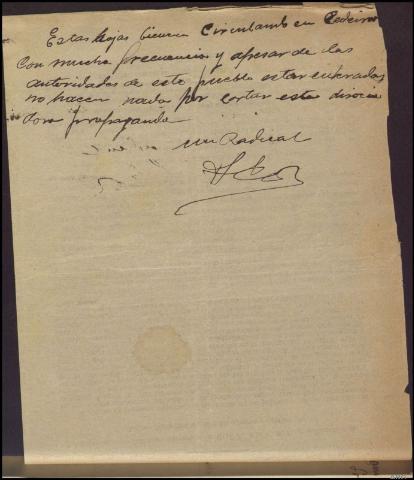 Estas hojas bienen Circulando en Cedeira
Con mucha frecuencia y apesar de las
autoridades de este pueblo estar enteradas
no hacen nada por cortar esta disocia
dora propaganda
un Radical